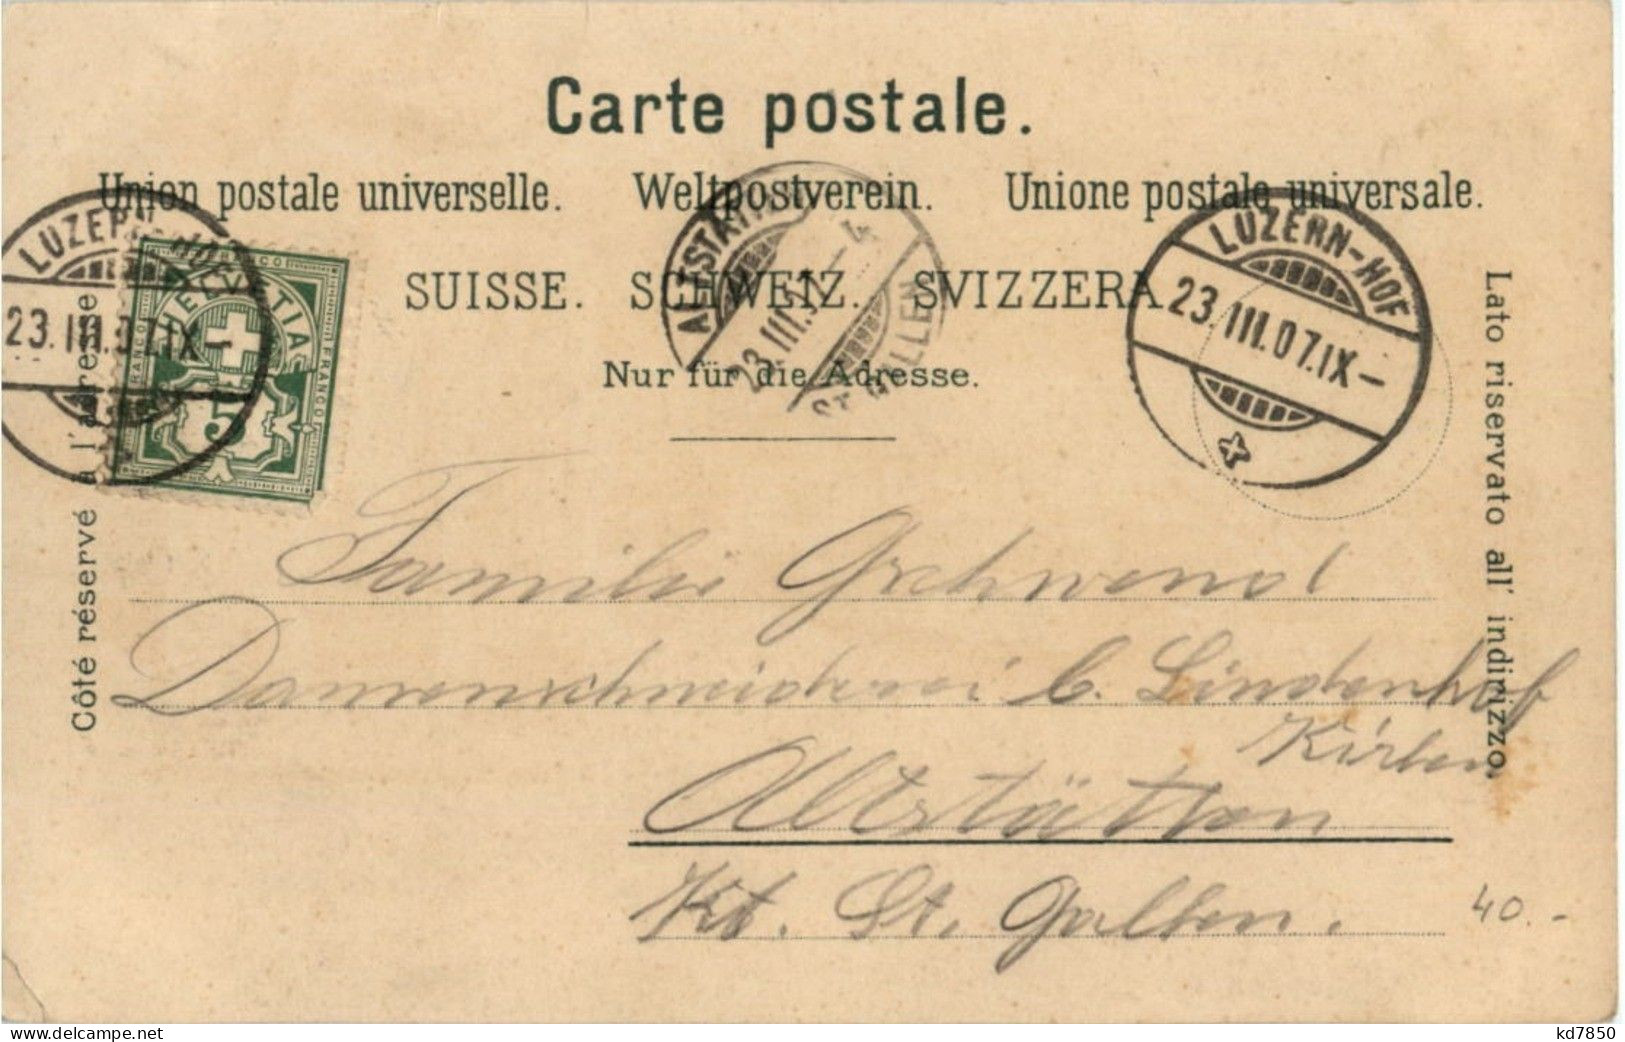 Carte postale.
Union postale universelle. Weltpostverein. Unione postale universale.
SUISSE. SCHWEIZ. SVIZZERA
Nur für die Adresse.
LUZERN-HOF
23.III.07.IX-
HELVETIA
FRANCO
5
ALTSTÄTTEN
23.III.07.-4
ST. GALLEN
LUZERN-HOF
23.III.07.IX-
Côté réservé à l'adresse
Lato riservato all' indirizzo.
Familie Gschwend
Damenschneiderei b. Lindenhof
Altstätten
Kt. St. Gallen.
40.-
delcampe.net
kd7850